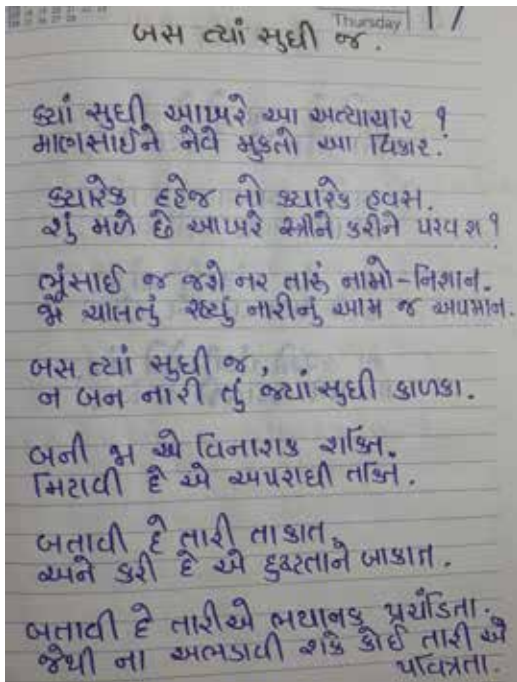 Thursday 17
બસ ત્યાં સુધી જ.
ક્યાં સુધી આખરે આ અત્યાચાર ?
માણસાઈને નેવે મુકતો આ વિકાર.
ક્યારેક દહેજ તો ક્યારેક હવસ.
શું મળે છે આખરે સ્ત્રીને કરીને પરવશ ?
ભૂંસાઈ જ જશે નર તારું નામો-નિશાન.
જો ચાલતું રહ્યું નારીનું આમ જ અપમાન.
બસ ત્યાં સુધી જ,
ન બન નારી તું જ્યાં સુધી કાળકા.
બની જા એ વિનાશક શક્તિ.
મિટાવી દે એ અપરાધી તક્તિ.
બતાવી દે તારી તાકાત,
અને કરી દે એ દુષ્ટતાને બાકાત.
બતાવી દે તારીએ ભયાનક પ્રચંડિતા.
જેથી ના અભડાવી શકે કોઈ તારી એ
પવિત્રતા.